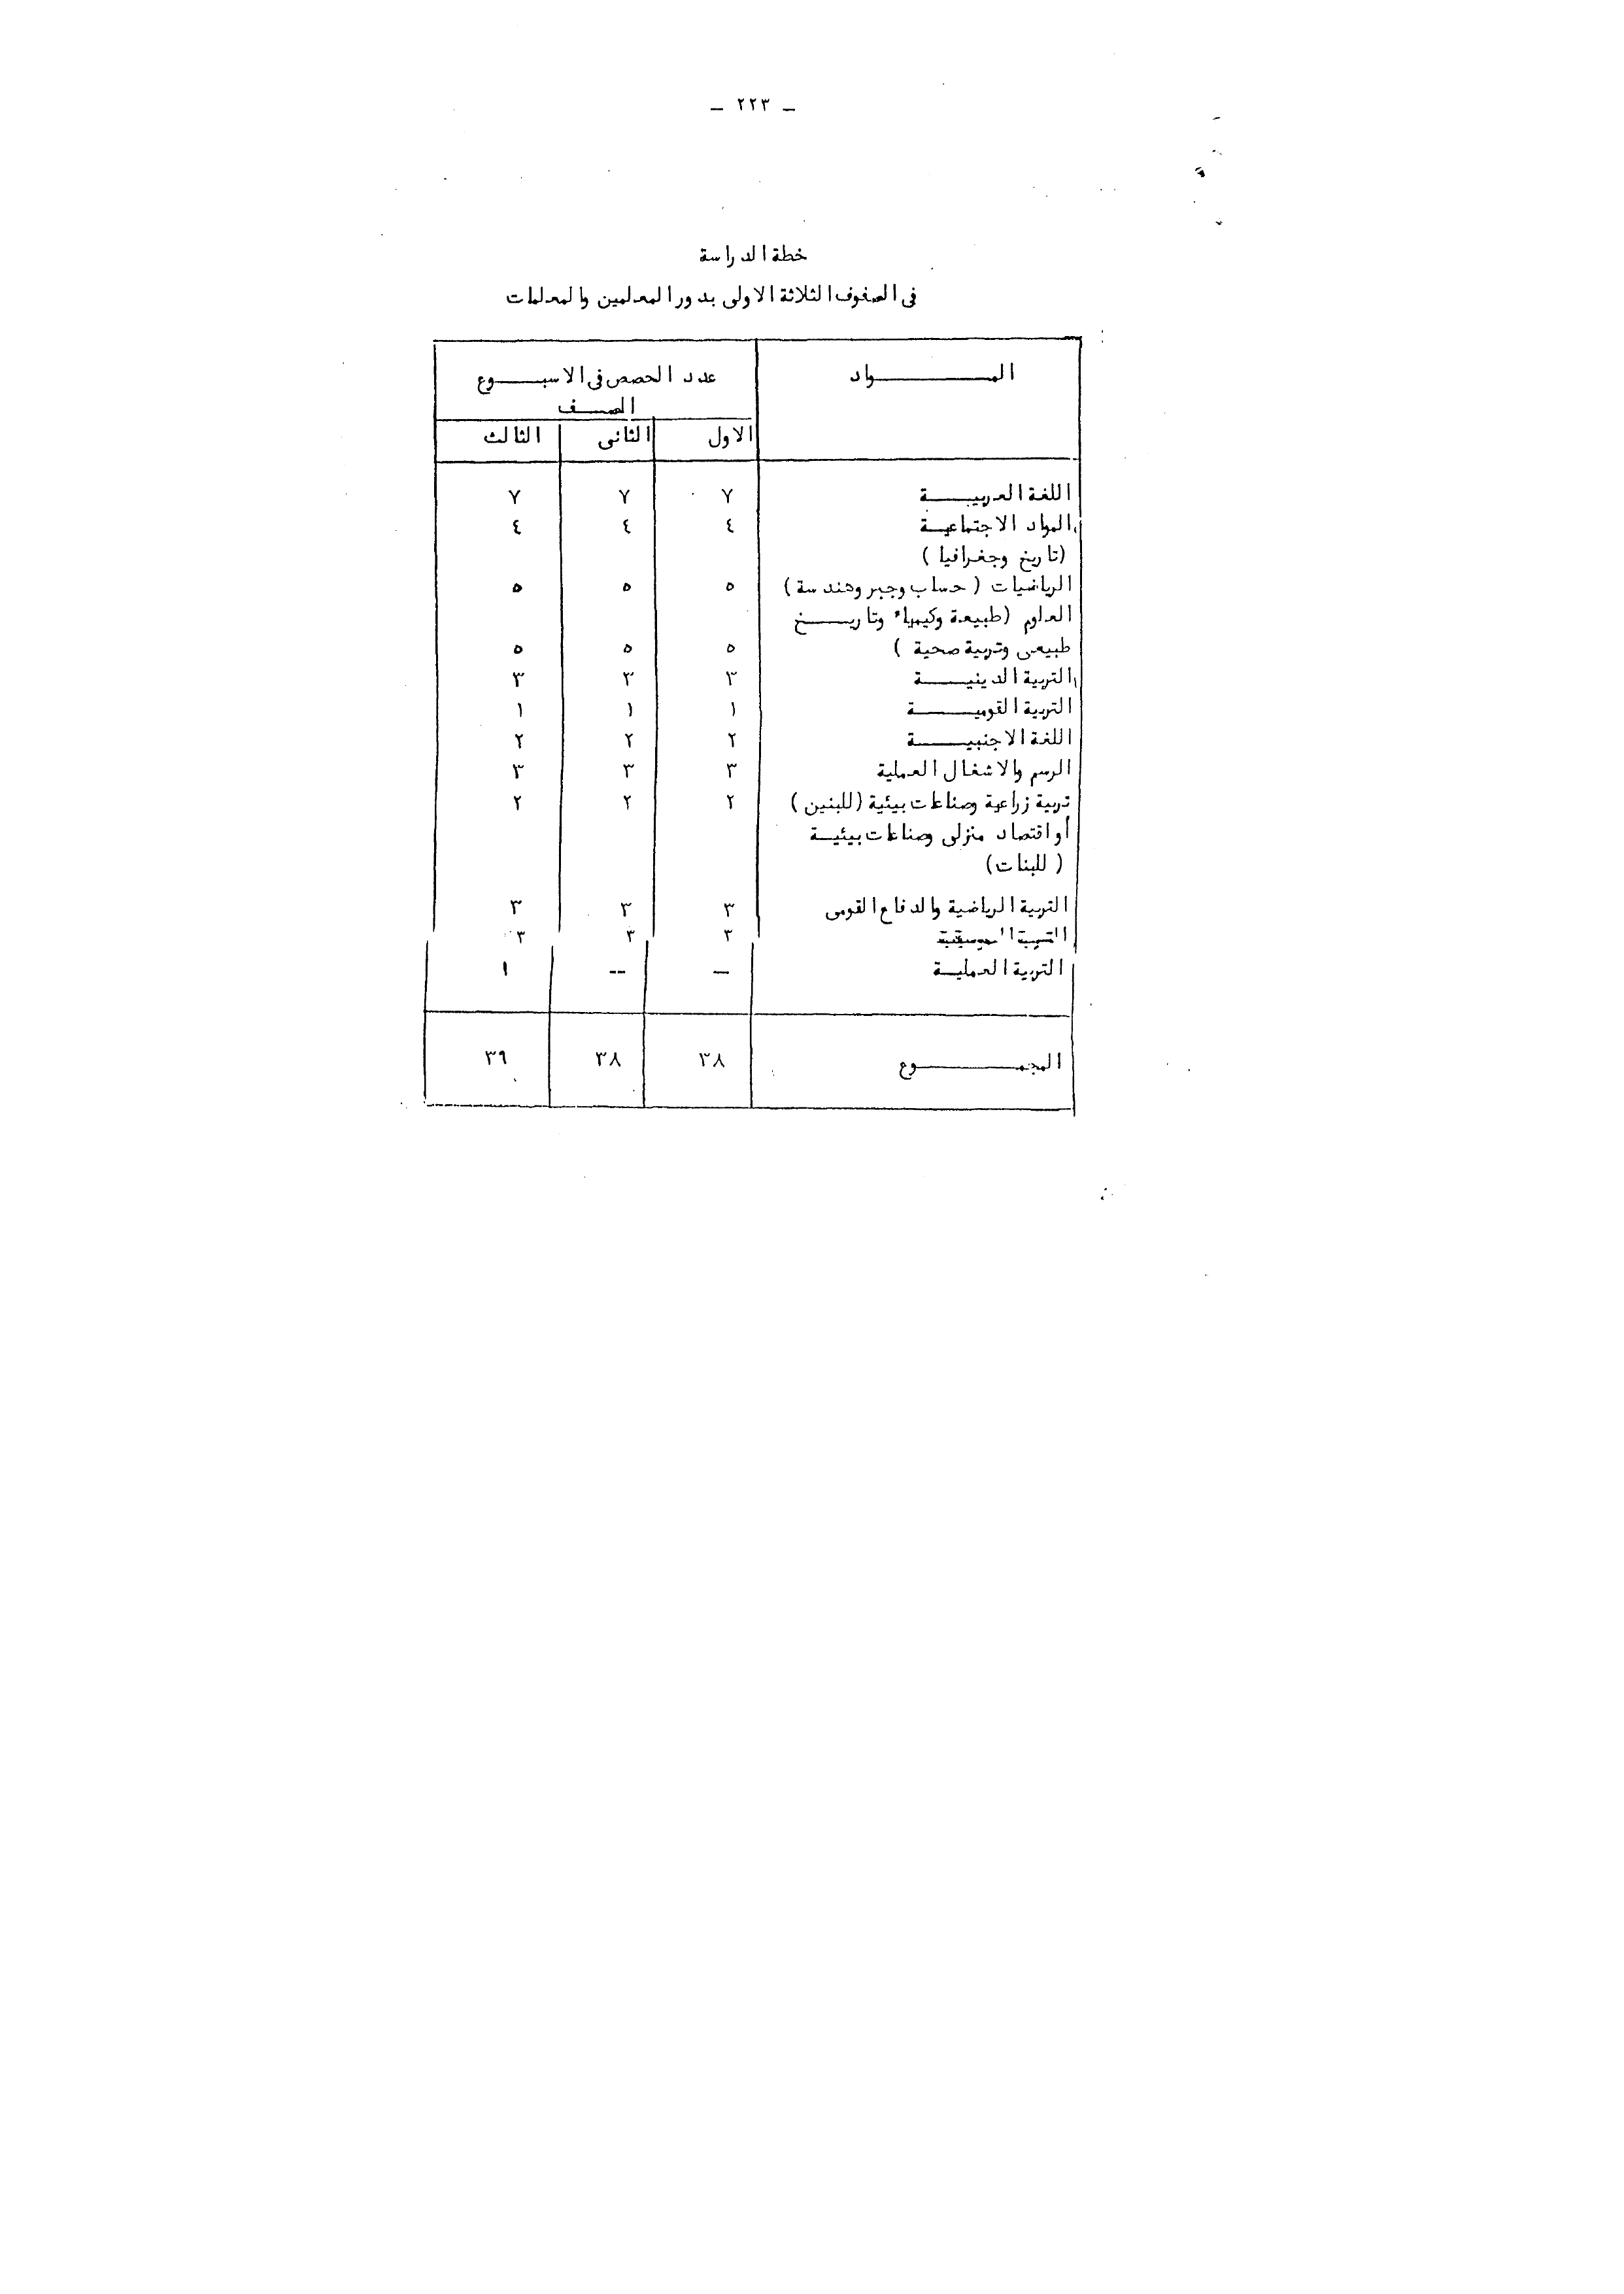 ـ ٢٢٣ ـ
خطة الدراسة
فى الصفوف الثلاثة الاولى بدور المعلمين والمعلمات
المـــــواد
عدد الحصص فى الاسبـــوع
الصــف
الاول الثانى الثالث
اللغة العربيـــة ٧ ٧ ٧
المواد الاجتماعيـة ٤ ٤ ٤
(تاريخ وجغرافيا)
الرياضيات (حساب وجبر وهندسة) ٥ ٥ ٥
العلوم (طبيعة وكيمياء وتاريـــخ
طبيعى وتربية صحية) ٥ ٥ ٥
التربية الدينيـــة ٣ ٣ ٣
التربية القوميـــة ١ ١ ١
اللغة الاجنبيـــة ٢ ٢ ٢
الرسم والاشغال العملية ٣ ٣ ٣
تربية زراعية وصناعات بيئية (للبنين) ٢ ٢ ٢
أو اقتصاد منزلى وصناعات بيئيـة
(للبنات)
التربية الرياضية والدفاع القومى ٣ ٣ ٣
التربية الموسيقية ٣ ٣ ٣
التربية العمليـة — -- ١
المجمـــــوع ٣٨ ٣٨ ٣٩